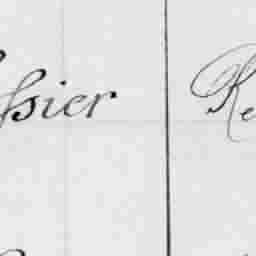 ssier Re